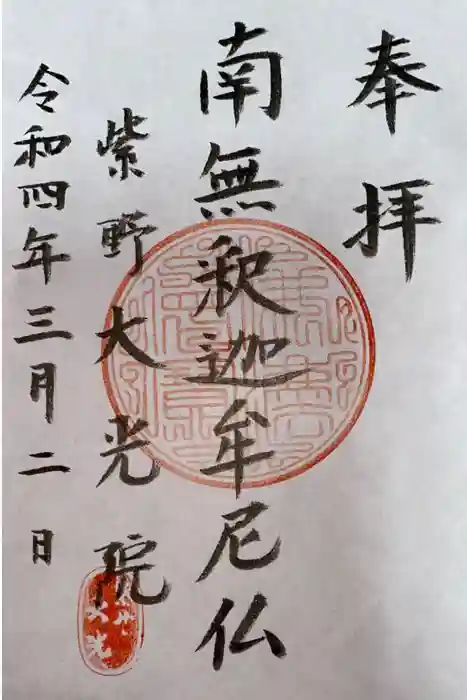 奉拝
南無釈迦牟尼仏
紫野大光院
令和四年三月二日